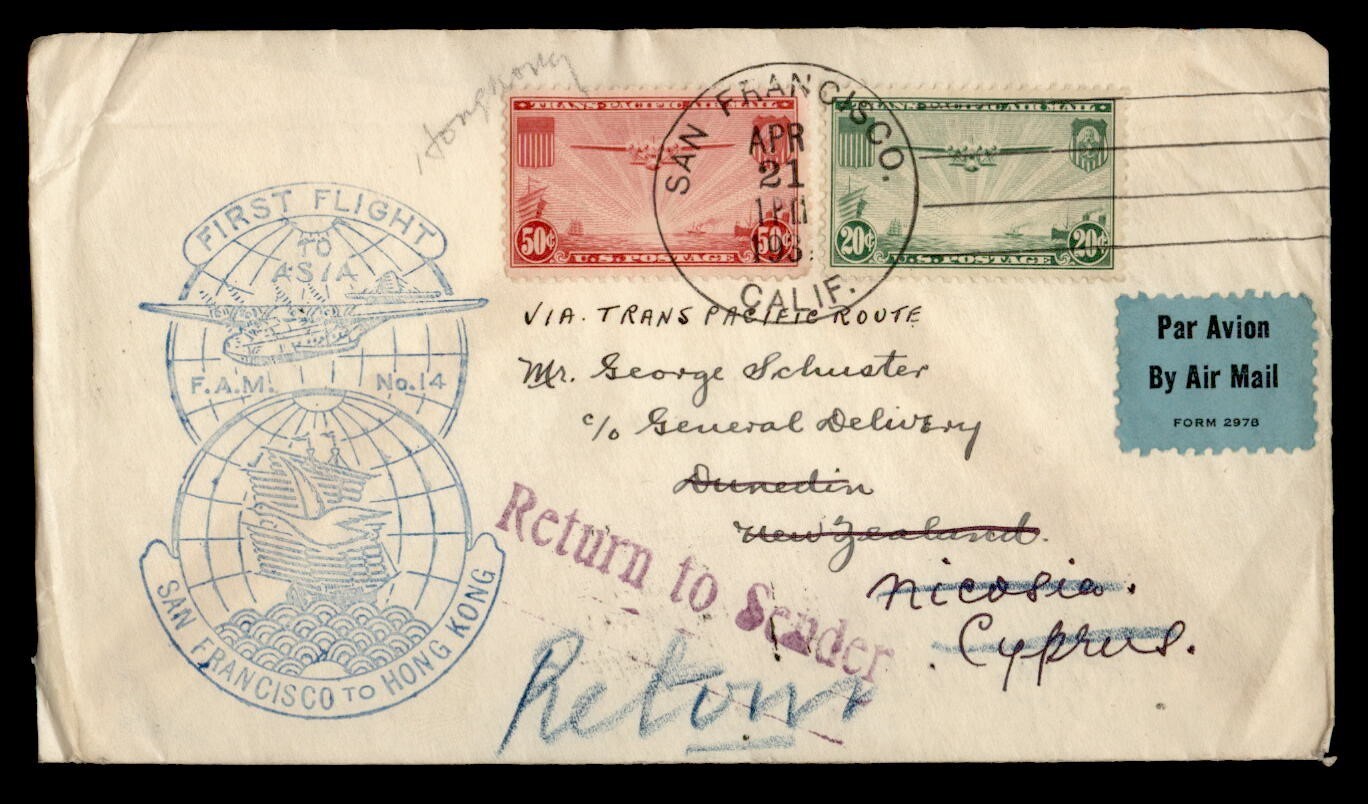 Hongkong
TRANS-PACIFIC AIR MAIL
50¢ 50¢
U.S. POSTAGE
TRANS-PACIFIC AIR MAIL
20¢ 20¢
U.S. POSTAGE
SAN FRANCISCO.
APR
21
CALIF.
FIRST FLIGHT
TO
ASIA
F.A.M. No.14
SAN FRANCISCO TO HONG KONG
VIA. TRANS PACIFIC ROUTE
Mr. George Schuster
c/o General Delivery
Dunedin
New Zealand.
Nicosia.
Cyprus.
Par Avion
By Air Mail
FORM 2978
Return to Sender
Retour